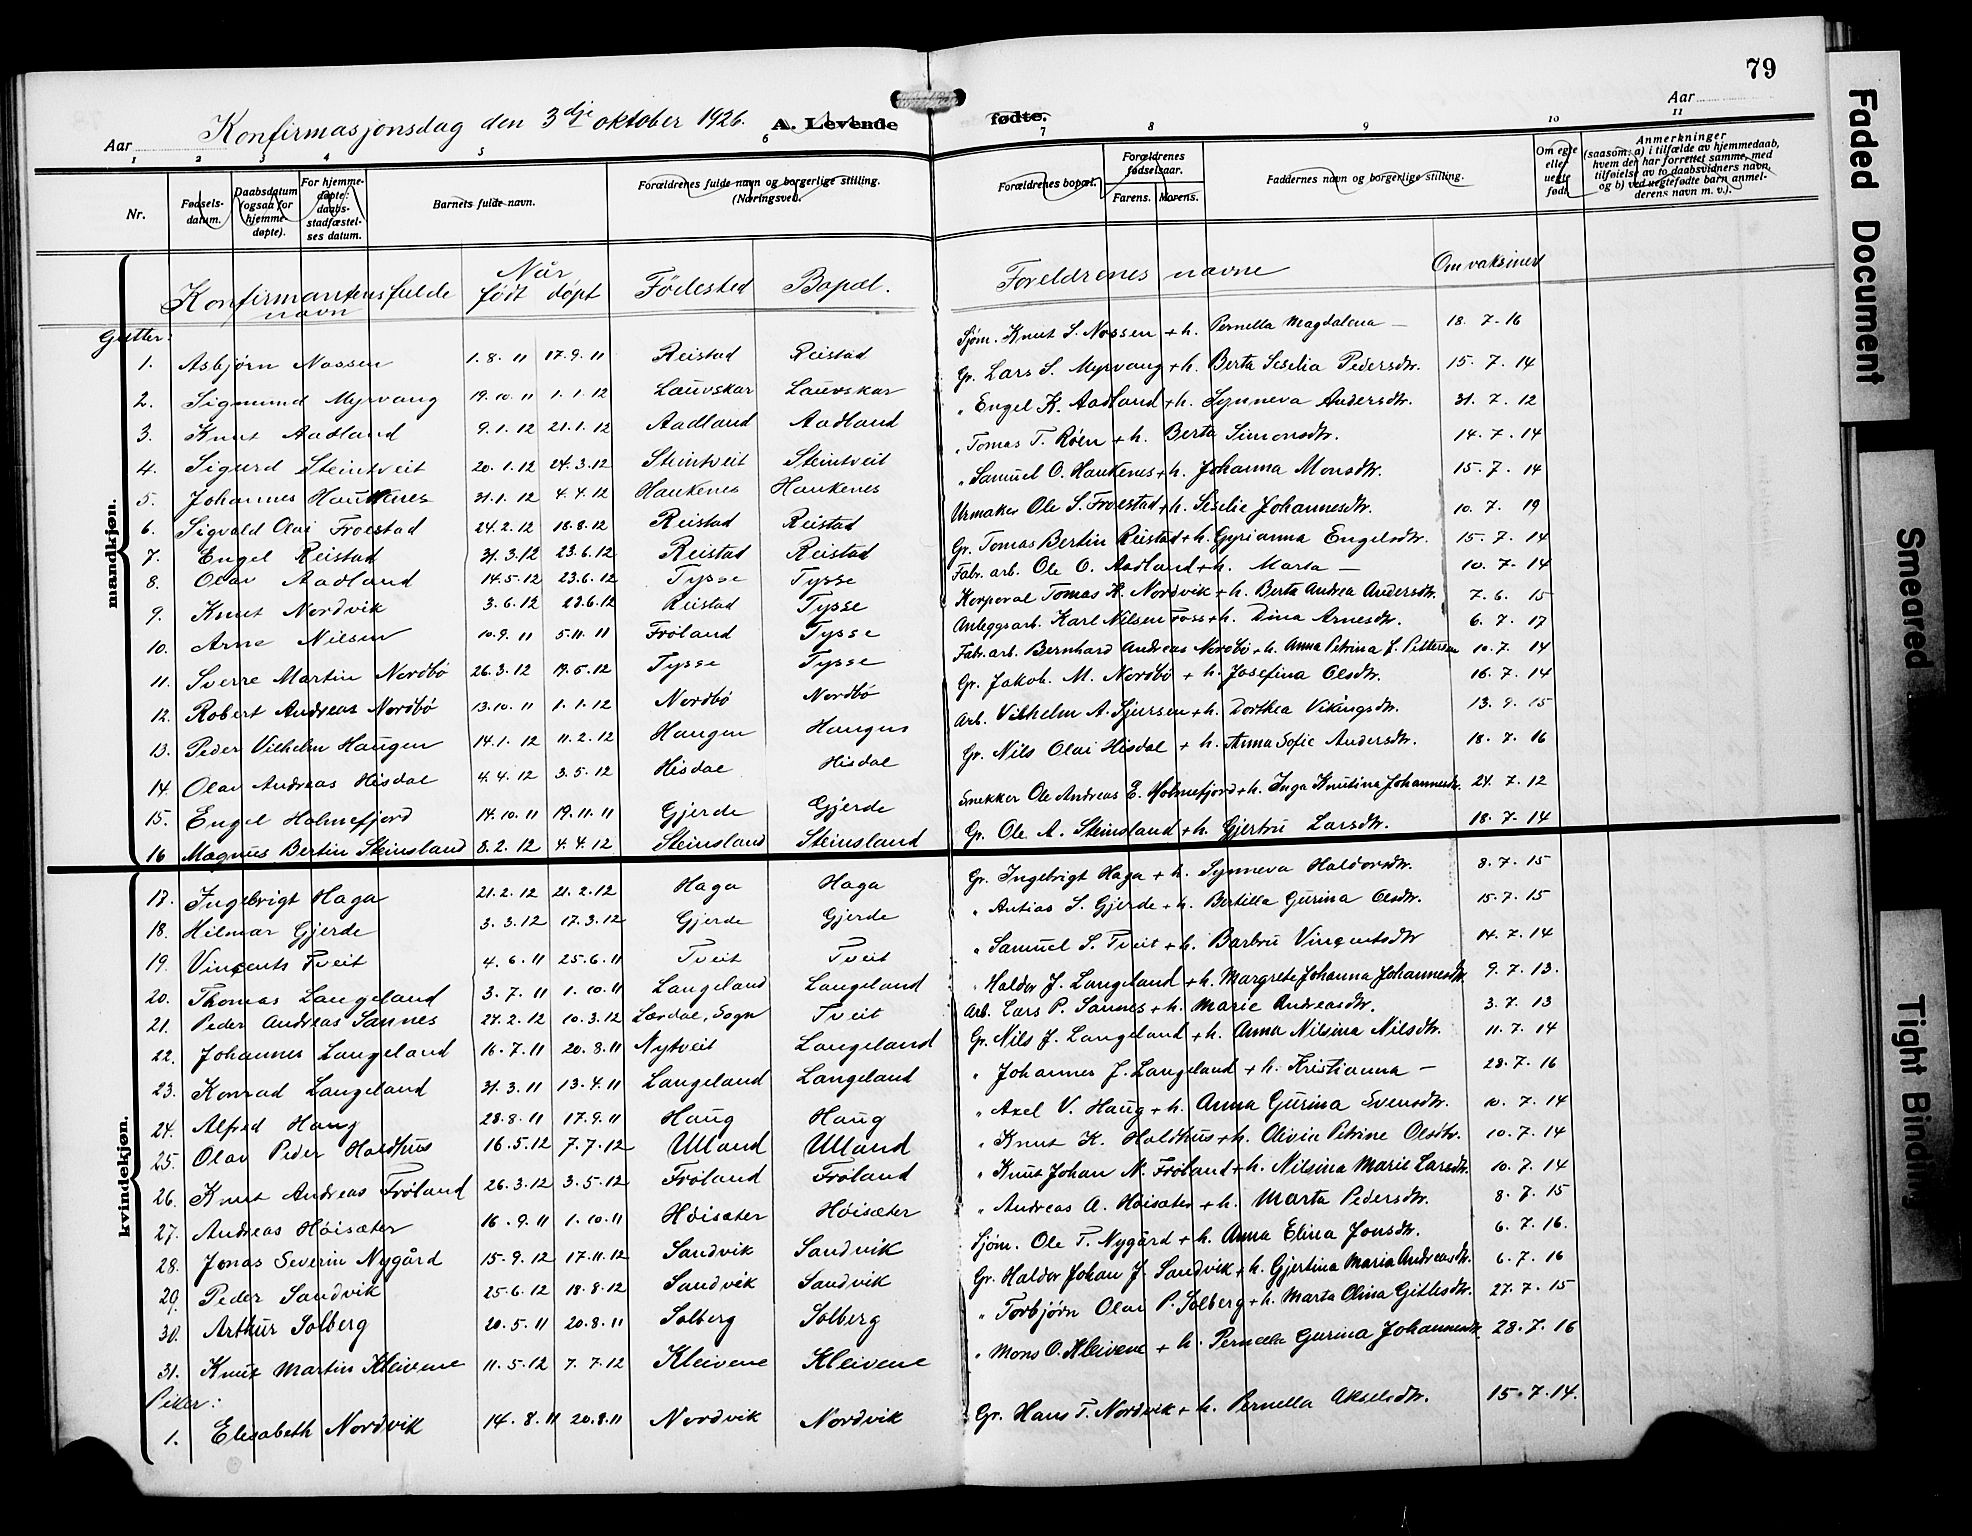 79
Konfirmasjonsdag den 3dje oktober 1926.
A. Levende fødte.
Aar
Aar
1 2 3 4 5 6 7 8 9 10 11
Nr.
Fødsels-datum.
Daabsdatum (ogsaa for hjemme-døpte).
For hjemme-døpte: daabs-stadfæstel-ses datum.
Barnets fulde navn.
Forældrenes fulde navn og borgerlige stilling. (Næringsvei.)
Forældrenes bopæl.
Forældrenes fødselsaar.
Farens. Morens.
Faddernes navn og borgerlige stilling.
Om egte eller uegte født.
Anmerkninger (saasom: a) i tilfælde av hjemmedaab, hvem der har forrettet samme, med tilføielse av to daabsvidners navn, og b) ved uegtefødte barn anmel-derens navn m. v.).
Konfirmantens fulde navn Når født døpt Fødested Bopæl. Foreldrenes navne Om vaksinert
mandkjøn.
Gutter:
1. Asbjørn Nossen 1.8.11 17.9.11 Reistad Reistad Sjøm. Knut S. Nossen + h. Pernella Magdalena — 18.7.16
2. Sigmund Myrvang 19.10.11 1.1.12 Lauvskar Lauvskar Gr. Lars S. Myrvang + h. Berta Seselia Pedersdtr. 15.7.14
3. Knut Aadland 9.1.12 21.1.12 Aadland Aadland " Engel K. Aadland + h. Synneva Andersdtr. 31.7.12
4. Sigurd Steintveit 20.1.12 24.3.12 Steintveit Steintveit " Tomas T. Røen + h. Berta Simonsdtr. 14.7.14
5. Johannes Haukenes 31.1.12 4.4.12 Haukenes Haukenes " Samuel O. Haukenes + h. Johanna Monsdtr. 15.7.14
6. Sigvald Olai Froestad 24.2.12 18.8.12 Reistad Reistad Urmaker Ole S. Froestad + h. Seselie Johannesdtr. 10.7.19
7. Engel Reistad 31.3.12 23.6.12 Reistad Reistad Gr. Tomas Bertin Reistad + h. Gyrianna Engelsdtr. 15.7.14
8. Olav Aadland 14.5.12 23.6.12 Tysse Tysse Fabr. arb. Ole O. Aadland + h. Marta — 10.7.14
9. Knut Nordvik 3.6.12 23.6.12 Reistad Tysse Korporal Tomas K. Nordvik + h. Berta Andrea Andersdtr. 7.6.15
10. Arne Nilsen 10.9.11 5.11.11 Frøland Tysse Anleggsarb. Karl Nilsen Foss + h. Dina Arnesdtr. 6.7.17
11. Sverre Martin Nordbø 26.3.12 19.5.12 Tysse Tysse Fabr. arb. Bernhard Andreas Nordbø + h. Anna Petrina J. Pettersen 10.7.14
12. Robert Andreas Nordbø 13.10.11 1.1.12 Nordbø Nordbø Gr. Jakob M. Nordbø + h. Josefina Olsdtr. 16.7.14
13. Peder Vilhelm Haugen 14.1.12 11.2.12 Haugen Haugen Arb. Vilhelm A. Sjursen + h. Dorthea Vikingsdtr. 13.9.15
14. Olav Andreas Hisdal 4.4.12 3.5.12 Hisdal Hisdal Gr. Nils Olai Hisdal + h. Anna Sofie Andersdtr. 18.7.16
15. Engel Holmefjord 14.10.11 19.11.11 Gjerde Gjerde Snekker Ole Andreas E. Holmefjord + h. Inga Knutina Johannesdtr. 24.7.12
16 Magnus Bertin Steinsland 8.2.12 4.4.12 Steinsland Steinsland Gr. Ole A. Steinsland + h. Gjertru Larsdtr. 18.7.14
kvindekjøn.
17. Ingebrigt Haga 21.2.12 21.2.12 Haga Haga Gr. Ingebrigt Haga + h. Synneva Haldorsdtr. 8.7.15
18. Hilmar Gjerde 3.3.12 17.3.12 Gjerde Gjerde " Antias S. Gjerde + h. Bertilla Gurina Olsdtr. 15.7.15
19. Vincents Tveit 4.6.11 25.6.11 Tveit Tveit " Samuel S. Tveit + h. Barbru Vincentsdtr 14.7.14
20. Thomas Langeland 3.7.11 1.10.11 Langeland Langeland " Haldor J. Langeland + h. Margreta Johanna Johannesdtr. 9.7.13.
21. Peder Andreas Sannes 27.2.12 10.3.12 Lærdal, Sogn Tveit Arb. Lars P. Sannes + h. Marie Andreasdtr. 3.7.13
22. Johannes Langeland 16.7.11 20.8.11 Nytveit Langeland Gr. Nils J. Langeland + h. Anna Nilsina Nilsdtr. 11.7.14
23. Konrad Langeland 31.3.11 13.4.11 Langeland Langeland " Johannes J. Langeland + h. Kristianna — 28.7.16
24. Alfred Haug 28.8.11 17.9.11 Haug Haug " Axel V. Haug + h. Anna Gurina Svensdtr. 10.7.14
25. Olav Peder Haldhus 16.5.12 7.7.12 Ulland Ulland " Knut K. Haldhus + h. Olivia Petrine Olsdtr. 10.7.14
26. Knut Andreas Frøland 26.3.12 3.5.12 Frøland Frøland " Knut Johan N. Frøland + h. Nilsina Marie Larsdtr. 10.7.14
27. Andreas Høisæter 16.9.11 1.10.11 Høisæter Høisæter " Andreas A. Høisæter + h. Marta Pedersdtr. 8.7.15
28. Jonas Severin Nygård 15.9.12 17.11.12 Sandvik Sandvik Sjøm. Ole T. Nygård + h. Anna Elina Jonsdtr. 6.7.16.
29. Peder Sandvik 25.6.12 18.8.12 Sandvik Sandvik Gr. Haldor Johan J. Sandvik + h. Gjertina Maria Andreasdtr. 6.7.16
30. Arthur Solberg 20.5.11 20.8.11 Solberg Solberg " Torbjørn Olai P. Solberg + h. Marta Olina Gittlesdtr. 27.7.15
31. Knut Martin Kleivene 11.5.12 7.7.12 Kleivene Kleivene " Mons O. Kleivene + h. Pernella Gurina Johannesdtr. 28.7.16
Piker:
1. Elisabeth Nordvik 14.8.11 20.8.11 Nordvik Nordvik Gr. Hans T. Nordvik + h. Pernella Akselsdtr. 15.7.14.
Faded Document
Smeared
Tight Binding